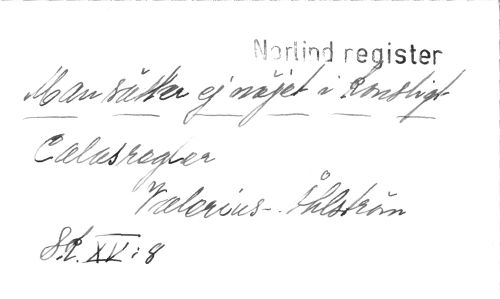 Norlind register
Man sätter ej nöjet i konstligt
Calasregler
Valerius - Åhlström
Sk. XV: 8